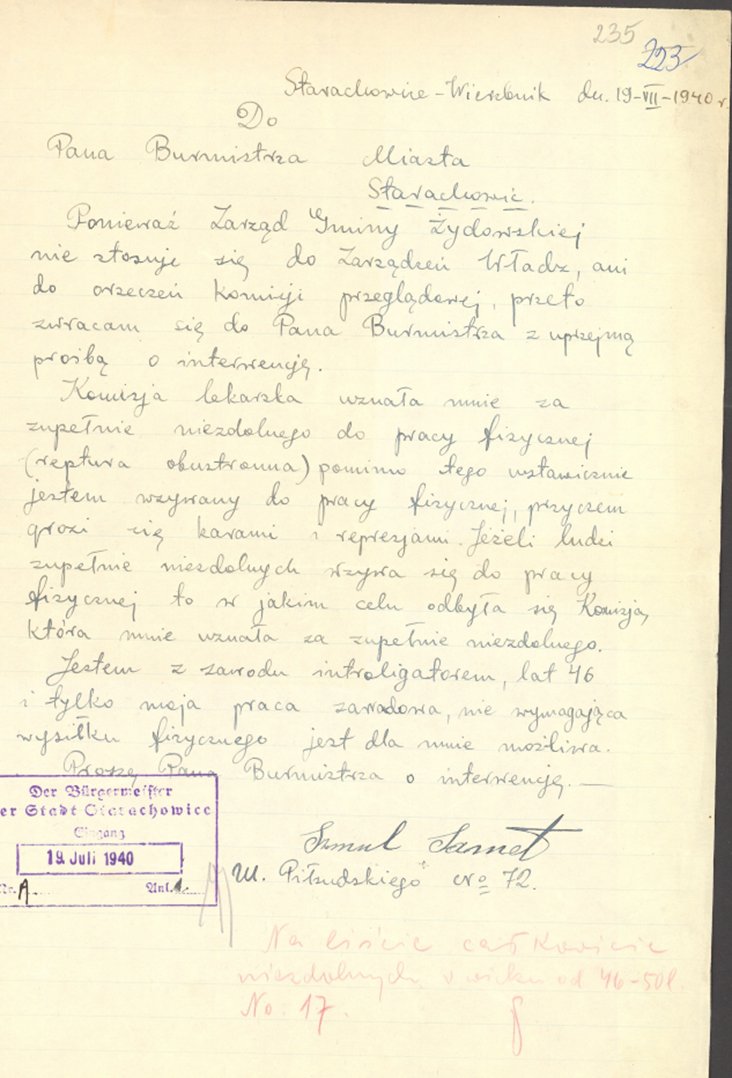 235
223
Starachowice - Wierzbnik dn. 19-VII-1940 r.
Do
Pana Burmistrza Miasta
Starachowic.
Ponieważ Zarząd Gminy Żydowskiej
nie stosuje się do Zarządzeń Władz, ani
do orzeczeń komisji przeglądowej, przeto
zwracam się do Pana Burmistrza z uprzejmą
prośbą o interwencję.
Komisja lekarska uznała mnie za
zupełnie niezdolnego do pracy fizycznej
(reptura obustronna) pomimo tego ustawicznie
jestem wzywany do pracy fizycznej, przyczem
grozi się karami i represjami. Jeżeli ludzi
zupełnie niezdolnych wzywa się do pracy
fizycznej to w jakim celu odbyła się Komisja,
która mnie uznała za zupełnie niezdolnego.
Jestem z zawodu introligatorem, lat 46
i tylko moja praca zawodowa, nie wymagająca
wysiłku fizycznego jest dla mnie możliwa.
Proszę Pana Burmistrza o interwencję. —
Der Bürgermeister
er Stadt Starachowice
Eingang
19. Juli 1940
Nr. A Anl.
Szmul Sarnet
ul. Piłsudskiego No 72.
Na liście całkowicie
niezdolnych w wieku od 46-50 l.
No. 17.